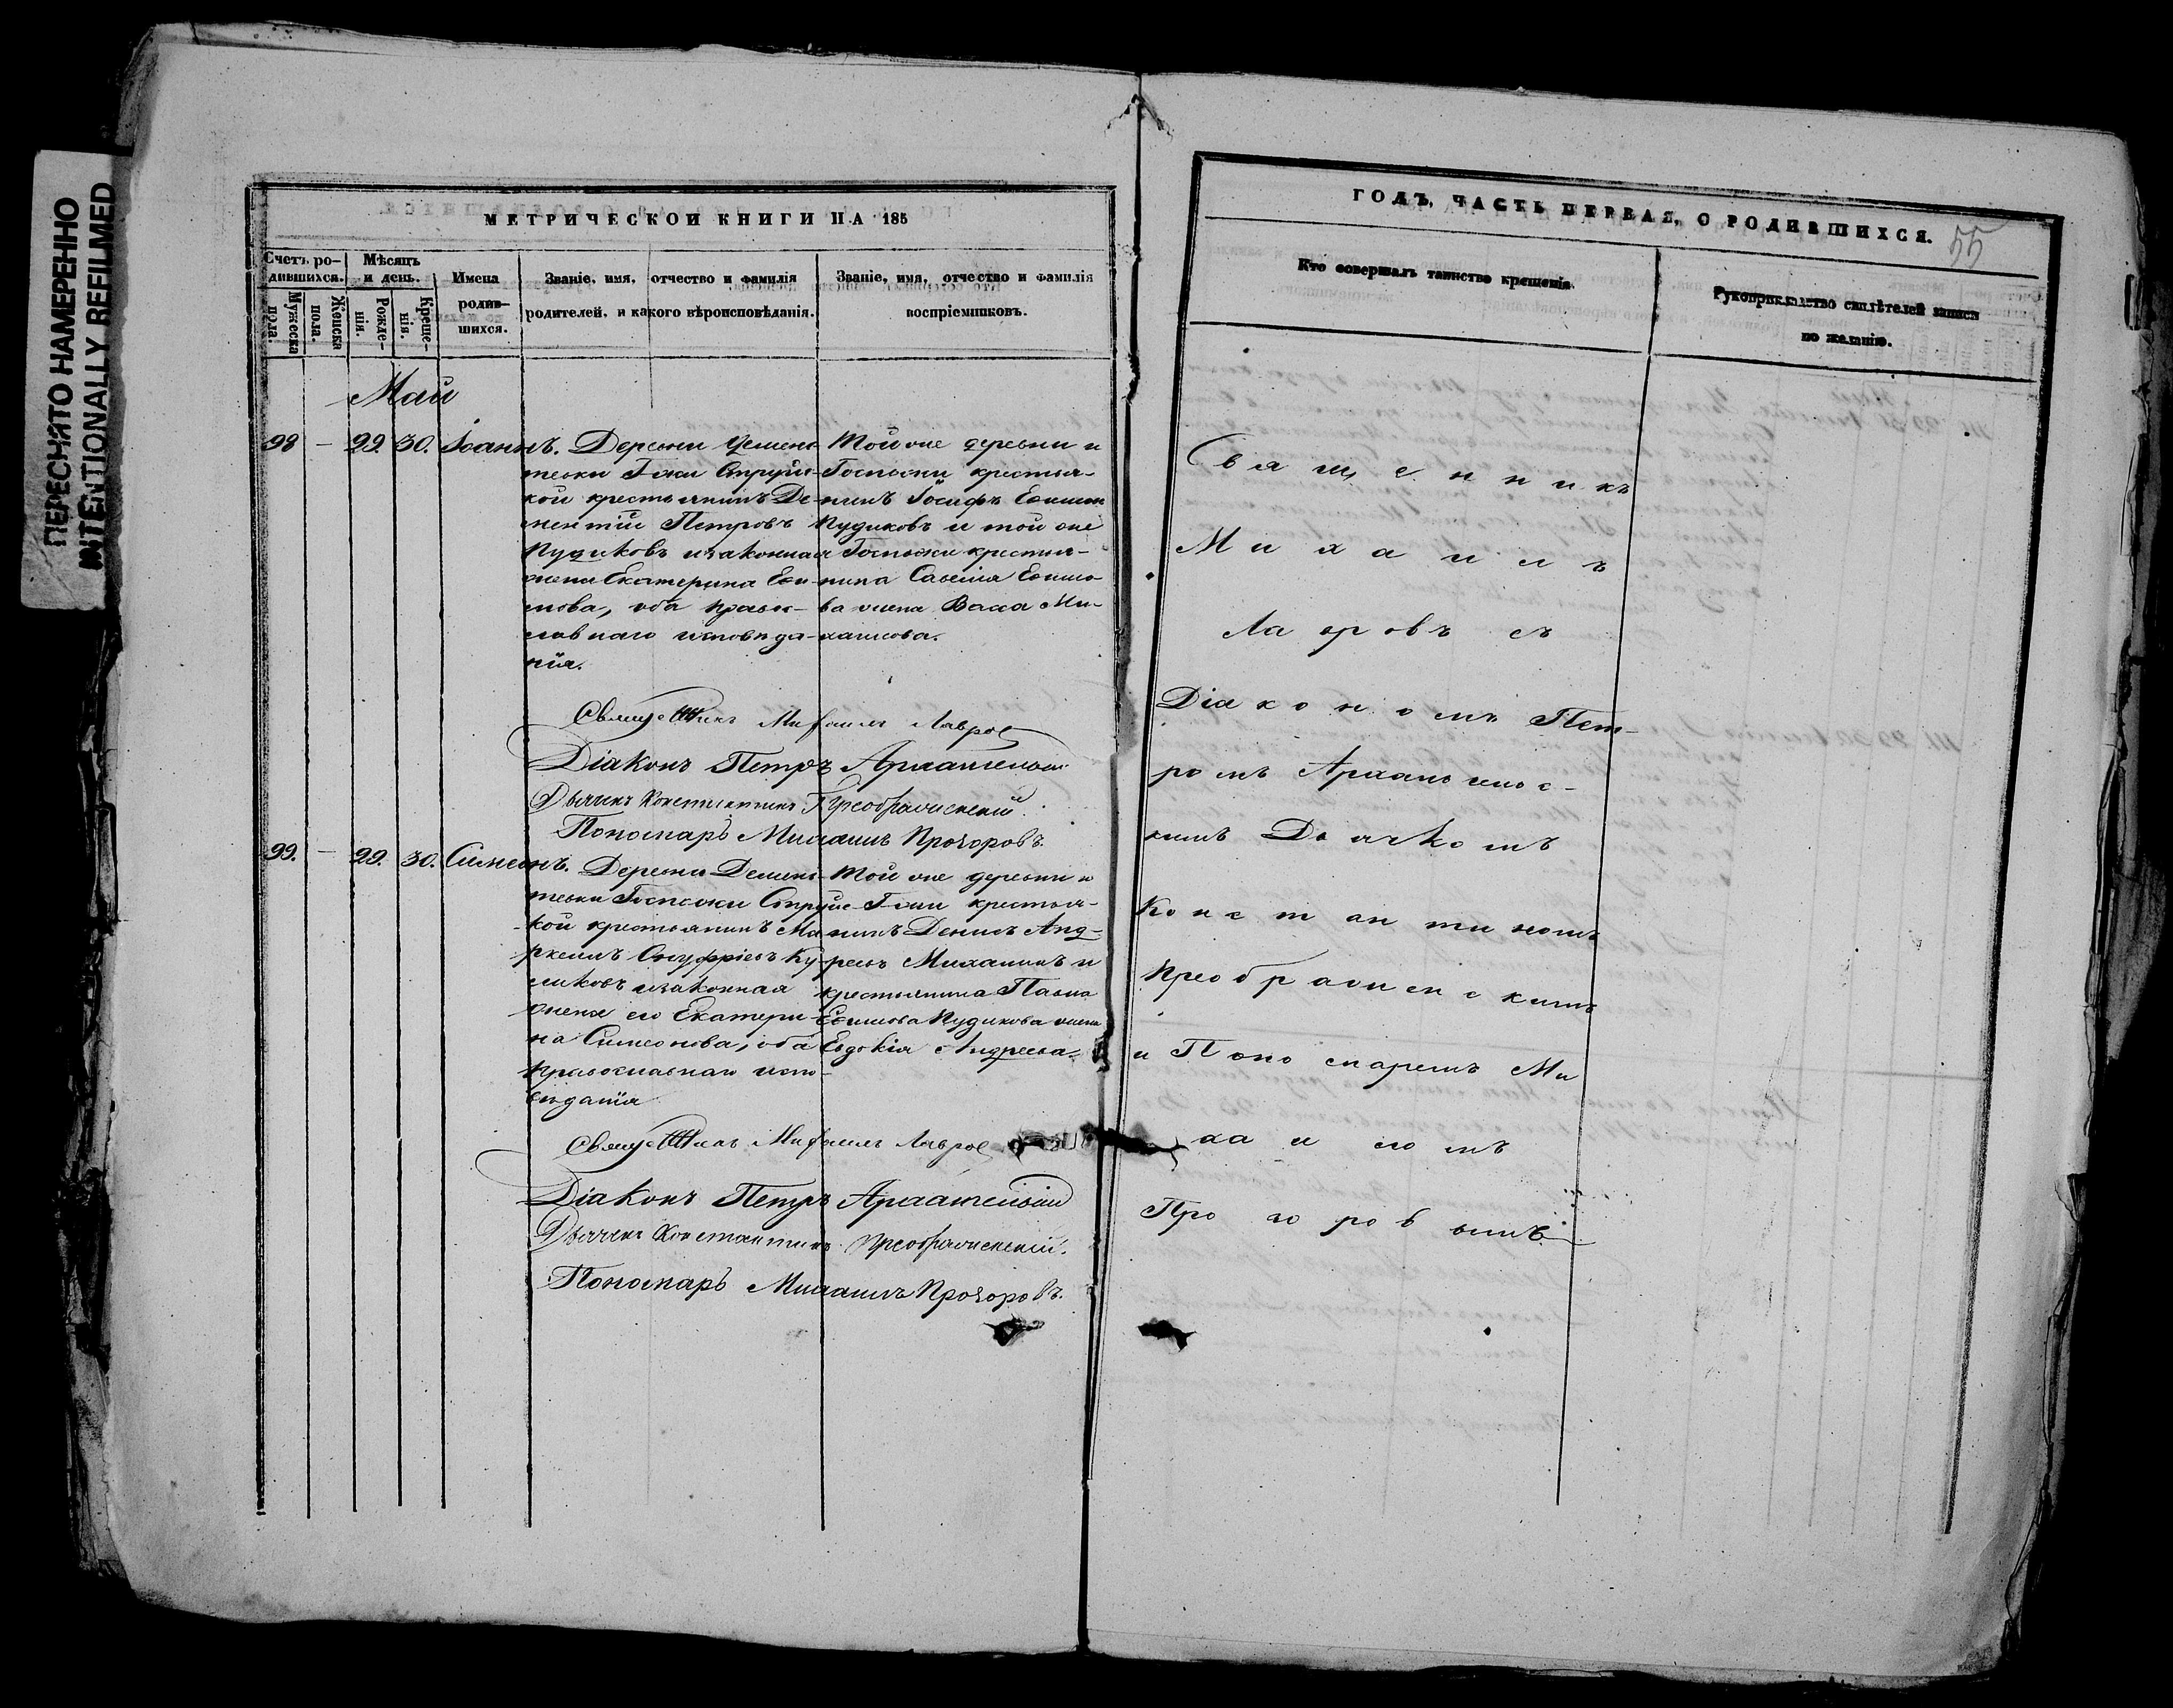 ПЕРЕСНЯТО НАМЕРЕННО
INTENTIONALLY REFILMED
МЕТРИЧЕСКОЙ КНИГИ НА 185
Счетъ ро-
дившихся.
Мужеска пола.
Женска пола.
Мѣсяцъ
и день.
Рожде-
нія.
Креще-
нія.
Имена
родив-
шихся.
Званіе, имя, отчество и фамилія
родителей, и какого вѣроисповѣданія.
Званіе, имя, отчество и фамилія
воспріемниковъ.
Май
98 — 29. 30. Іоаннъ.
Деревни
тевки Г-жи Струйс-
кой крестьянинъ Де-
ментій Петровъ
Кудиковъ и законная
жена Екатерина Ефи-
мова, оба право-
славнаго исповѣда-
нія.
Той же деревни и
Госпожи крестья-
нинъ Іосифъ Ефимов
Кудиковъ и той же
Госпожи крестья-
нина Савелія Ефимо-
ва жена Васса Ми-
хайлова.
Священникъ Михаилъ Лавров
Діаконъ Петръ Архангельскій
Дьячекъ Константинъ Преображенскій.
Пономарь Михаилъ Прохоровъ.
99. — 29. 30. Симеонъ.
Деревни
тевки Госпожи Струйс-
кой крестьянинъ Ма-
ркеллъ Онуфріевъ Ку-
ликовъ и законная
жена его Екатери-
на Симеонова, оба
православнаго испо-
вѣданія
Той же деревни и
Г-жи крестья-
нинъ Денисъ Анд-
реевъ Михалинъ и
крестьянина Павла
Ефимова Кудикова жена
Евдокія Андреева.
Священникъ Михаилъ Лавров
Діаконъ Петръ Архангельскій
Дьячекъ Константинъ Преображенскій.
Пономарь Михаилъ Прохоровъ.
ГОДЪ, ЧАСТЬ ПЕРВАЯ, О РОДИВШИХСЯ.
55
Кто совершалъ таинство крещенія.
Рукоприкладство свидѣтелей записи
по желанію.
Священникъ
Михаилъ
Лавровъ съ
Діакономъ Пет-
ромъ Архангельс-
кимъ Дьячкомъ
Константиномъ
Преображенскимъ
и Пономаремъ Ми
хаиломъ
Прохоровымъ